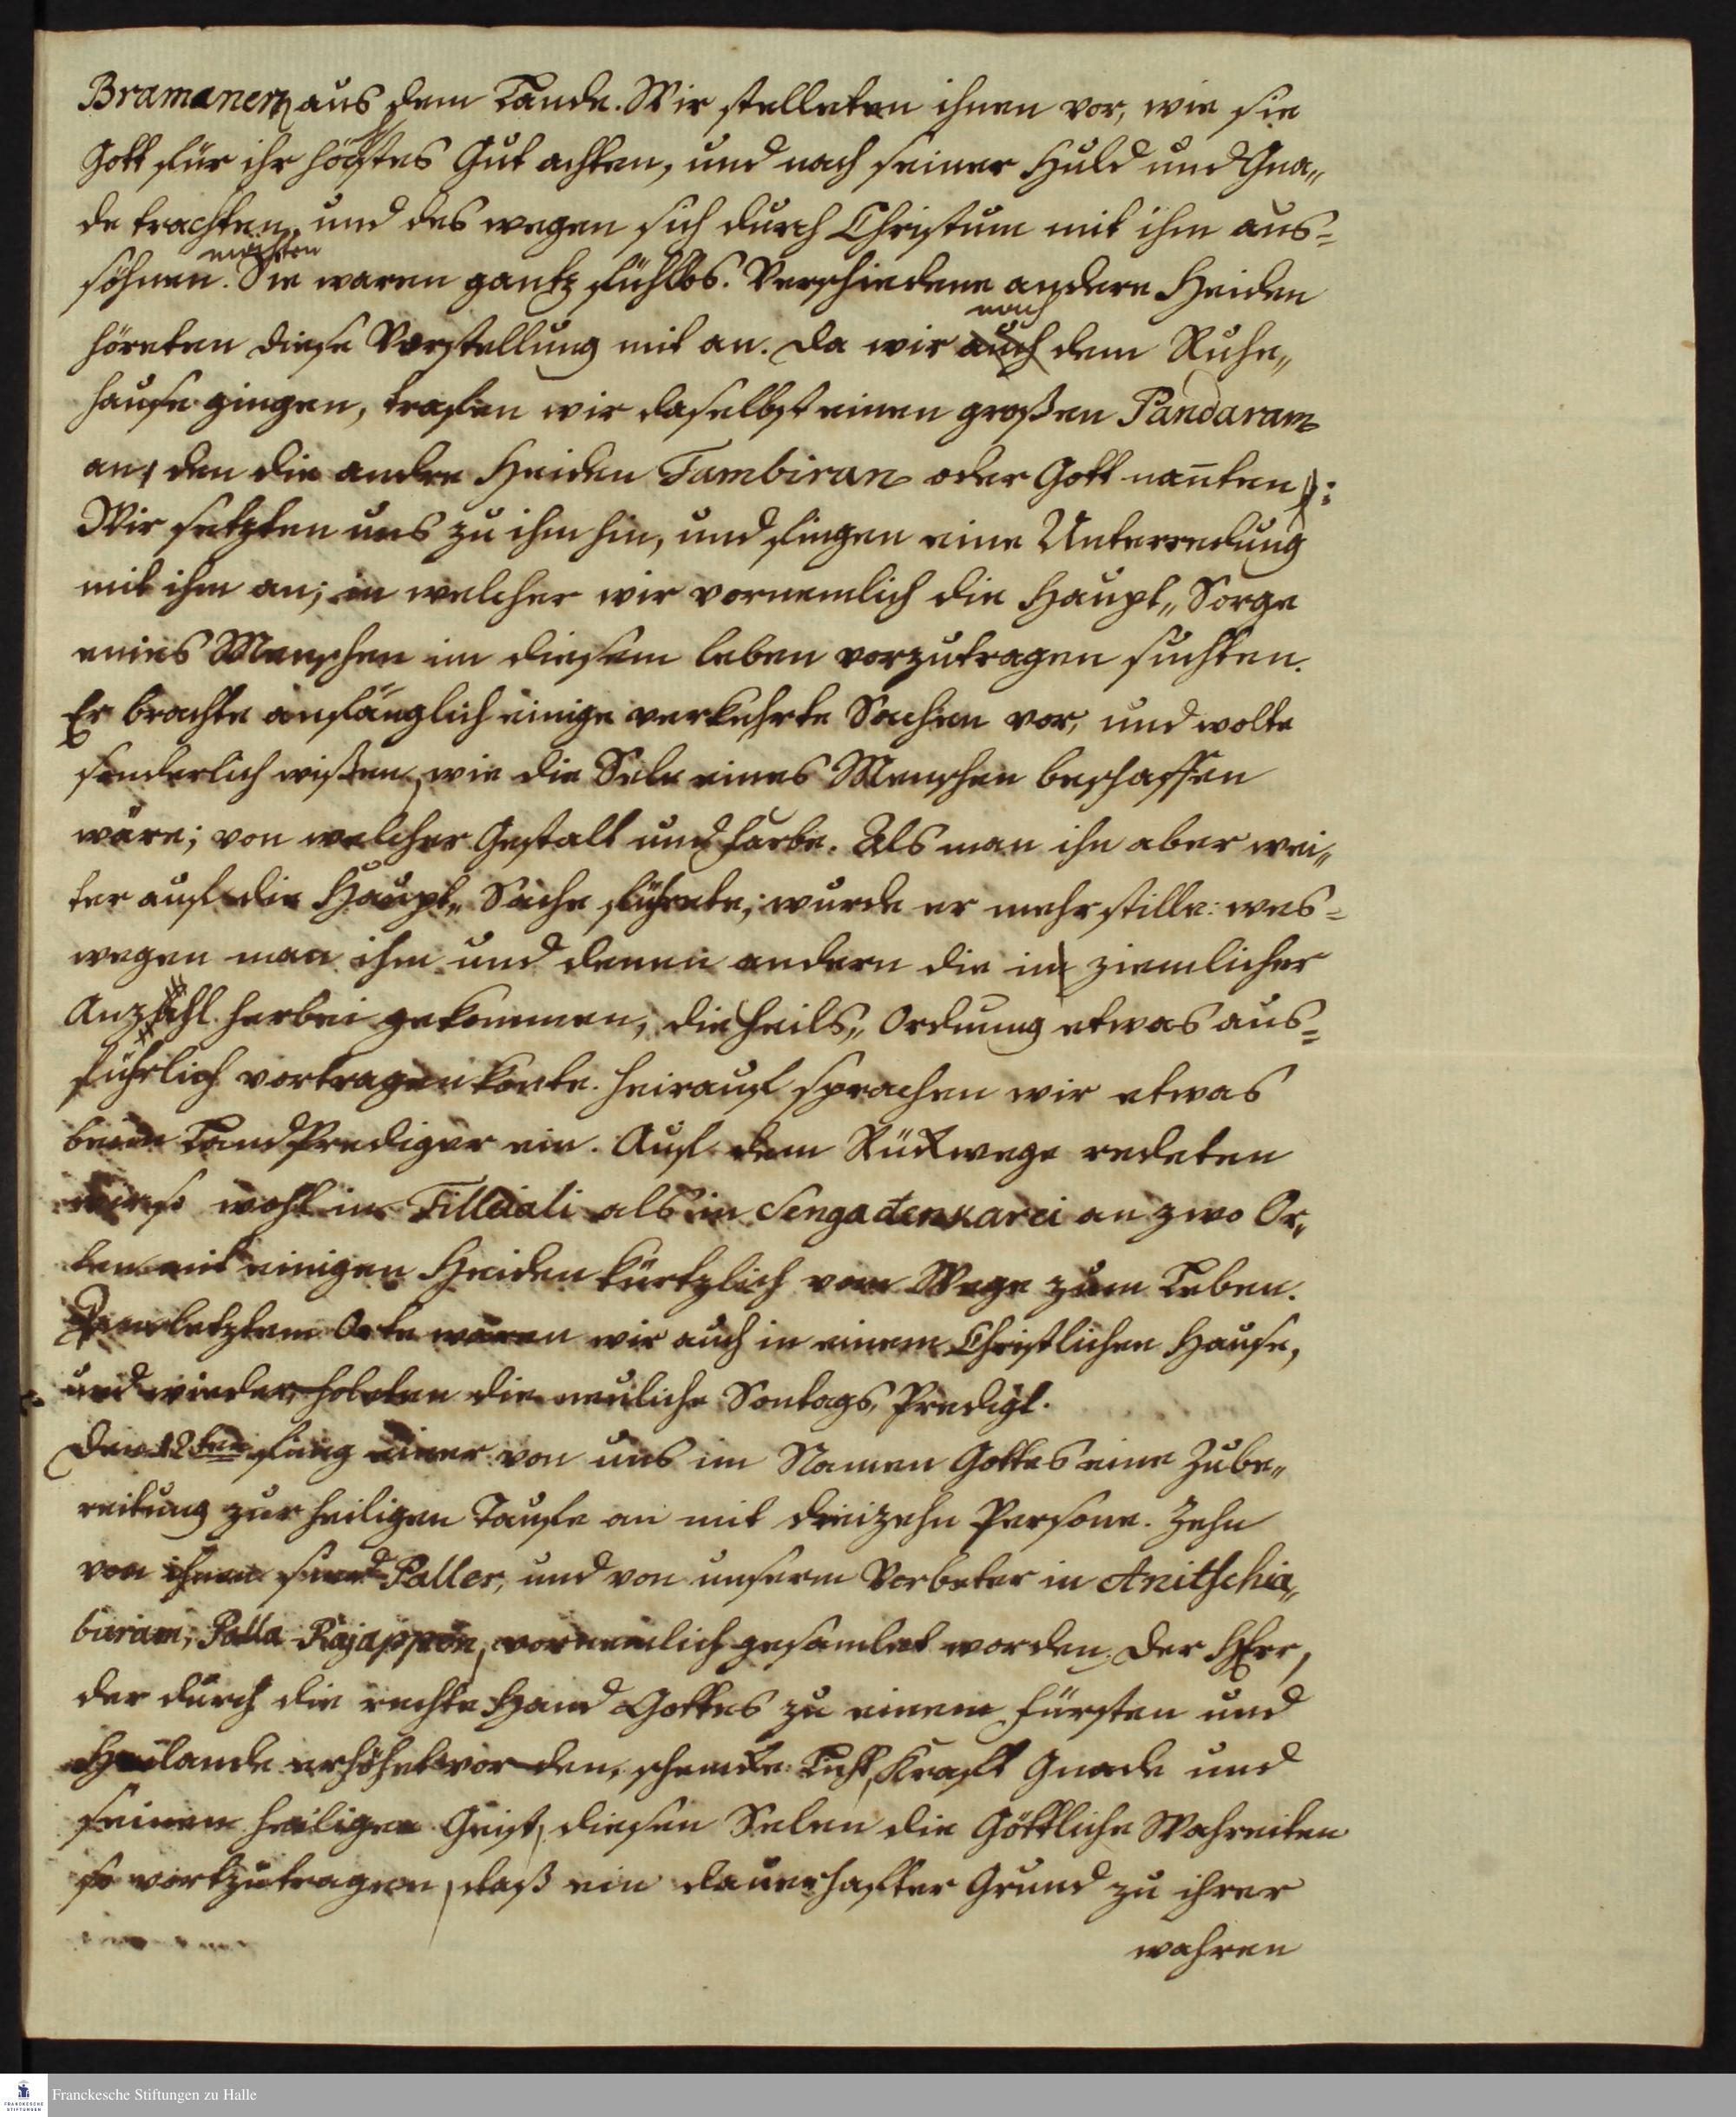 Bramanern aus dem Lande. Wir stelleten ihnen vor, wie sie
Gott für ihr höchstes Gut achten, und nach seiner Huld und Gna„
de trachten, und des wegen sich durch Christum mit ihm aus=
möchten
söhnen. Sie waren gantz fühllos. Verschiedene andere Heiden
noch
höreten diese Vorstellung mit an. Da wir auch dem Ruhe„
hause gingen, trafen wir daselbst einen großen Pandaram
an, den die andre Heiden Tambiran oder Gott nan̄ten:
Wir setzten uns zu ihm hin, und fingen eine Unterredung
mit ihm an; in welcher wir vornemlich die Haupt„ Sorge
eines Menschen in diesem leben vorzutragen suchten.
Er brachte anfänglich einige verkehrte Sachen vor, und wolte
sonderlich wißen, wie die Sele eines Menschen beschaffen
wäre; von welcher Gestalt und farbe. Als man ihn aber wei„
ter auf die Haupt„ Sache führete; wurde er mehr stille: wes=
wegen man ihm und denen andern die in ziemlicher
Anzahl herbei gekommen, die Heils„ Ordnung etwas aus=
führlich vortragen konte. Heirauf sprachen wir etwas
beim LandPrediger ein. Auf dem Rückwege redeten
wir so wohl in Tilleiali als in Sengadenkarei an zwo Or„
ten mit einigen Heiden kürtzlich vom Wege zum Leben.
letztem Orte waren wir auch in einem Christlichen Hause,
und wieder holeten die neuliche Sontags, Predigt.
Den 12ten fing einer von uns im Namen Gottes eine Zube„
reitung zur heiligen Taufe an mit dreizehn Persone. Zehn
von ihnen sind Paller, und von unserm Vorbeter in Anitschia„
buram, Palla Rajappen, vornemlich gesamlet worden. Der HErr,
der durch die rechte Hand Gottes zu einem fürsten und
Heilande erhöhet worden, schencke Licht, Kraft Gnade und
seinen heiligen Geist, diesen Selen die Göttliche Wahreiten
so vortzutragen, daß ein dauerhafter Grund zu ihrer
wahren
Franckesche Stiftungen zu Halle
FRANCKESCHE
STIFTUNGEN